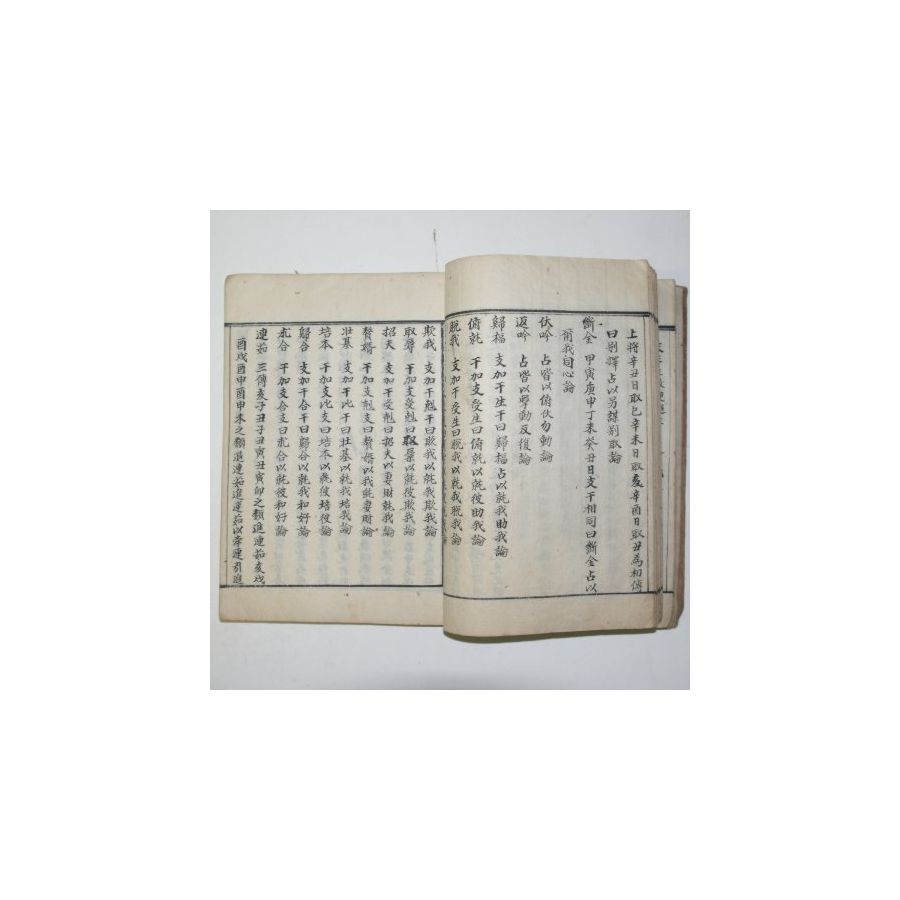 上将辛丑日取巳辛未日取亥辛酉日取丑為初傳
曰別譯占以另謀別取論
斷金 甲寅庚申丁未癸丑日支干相同曰斷金占以
爾我同心論
伏吟 占皆以俯伏勿動論
返吟 占皆以擧動反復論
歸福 支加干生干曰歸福占以就我助我論
俯就 干加支受生曰俯就以就彼助我論
脱我 支加干受生曰脱我以就我脱我論
欺我 支加干剋干曰欺我以就我欺我論
取辱 干加支受剋曰取辱以就彼欺我論
招夫 支加干受剋曰招夫以妻財就我論
贅婿 干加支剋支曰贅婿以我就妻財論
壯基 支加干比干曰壯基以就我培我論
培本 干加支比支曰培本以就彼培彼論
歸合 支加干合干曰歸合以就我和好論
求合 干加支合支曰求合以就彼和好論
連茹 三傳亥子丑子丑寅丑寅卯之類進連茹亥戌
酉戌酉申酉申未之類退連茹進連茹以牽連引進